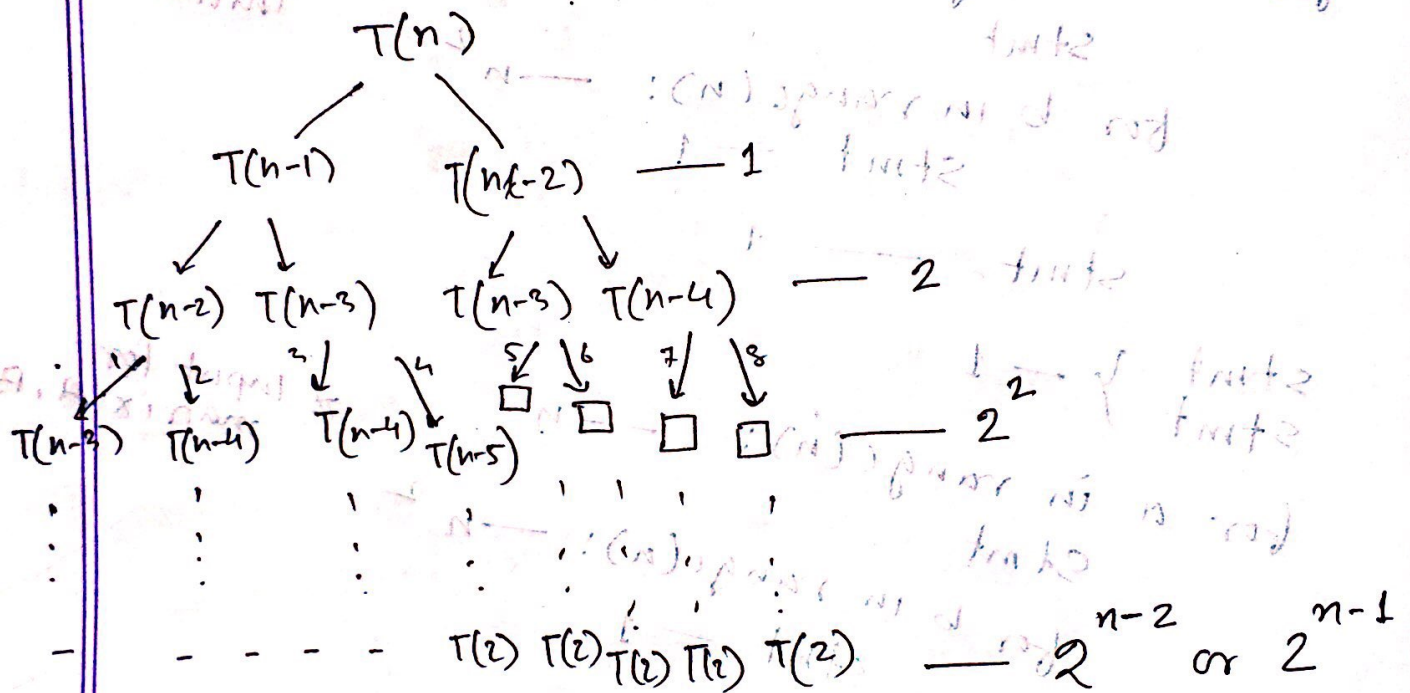 T(n)
T(n-1) T(n-2) — 1
T(n-2) T(n-3) T(n-3) T(n-4) — 2
1 2 3 4 5 6 7 8
T(n-3) T(n-4) T(n-4) T(n-5) □ □ □ □ — 2²
- - - - - T(2) T(2) T(2) T(2) T(2) — 2ⁿ⁻² or 2ⁿ⁻¹